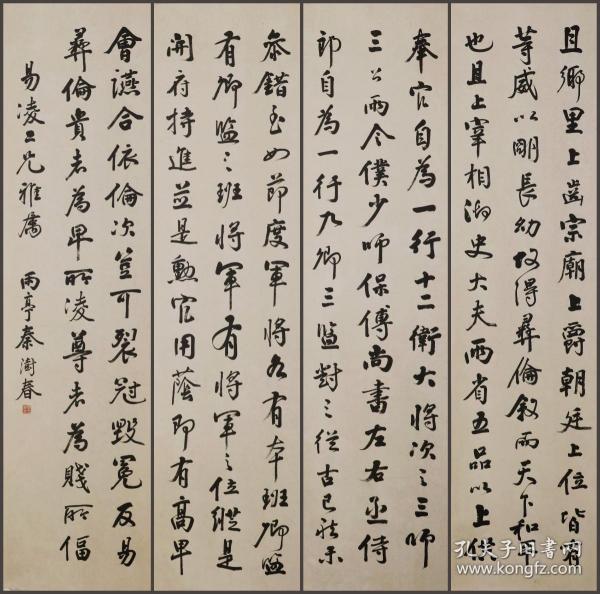 且鄉里上齒宗廟上爵朝廷上位皆有
等威以明長幼故得彞倫敘而天下和平
也且上宰相御史大夫兩省五品以上供
奉官自為一行十二衛大將次之三師
三公兩令僕少師保傅尚書左右丞侍
郎自為一行九卿三監對之從古已然未
參錯至如節度軍將各有本班卿監
有卿監之班將軍有將軍之位縱是
開府特進並是勳官用蔭即有高卑
會讌合依倫次豈可裂冠毀冕反易
彞倫貴者為卑所淩尊者為賤所偪
易淩二兄雅屬 雨亭秦澍春
孔夫子旧书网
www.kongfz.com